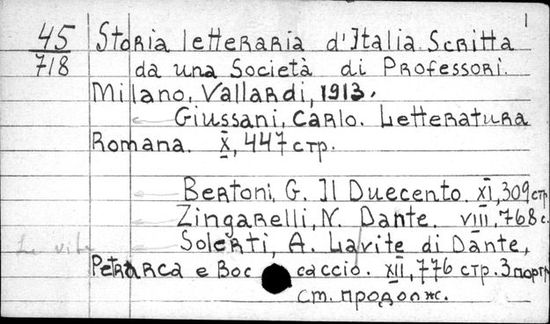 1
45 Storia letteraria d'Italia Scritta
718 da una Società di Professori.
Milano, Vallardi, 1913.
Giussani, Carlo. Letteratura
Romana. X, 447 стр.
Bertoni, G. Il Duecento. XI, 309 стр
Zingarelli, N. Dante. VIII, 768 с.
Solerti, A. La vite di Dante,
Le vite
Petrarca e Boccaccio. XII, 776 стр. 3 портр
ст. продолж.